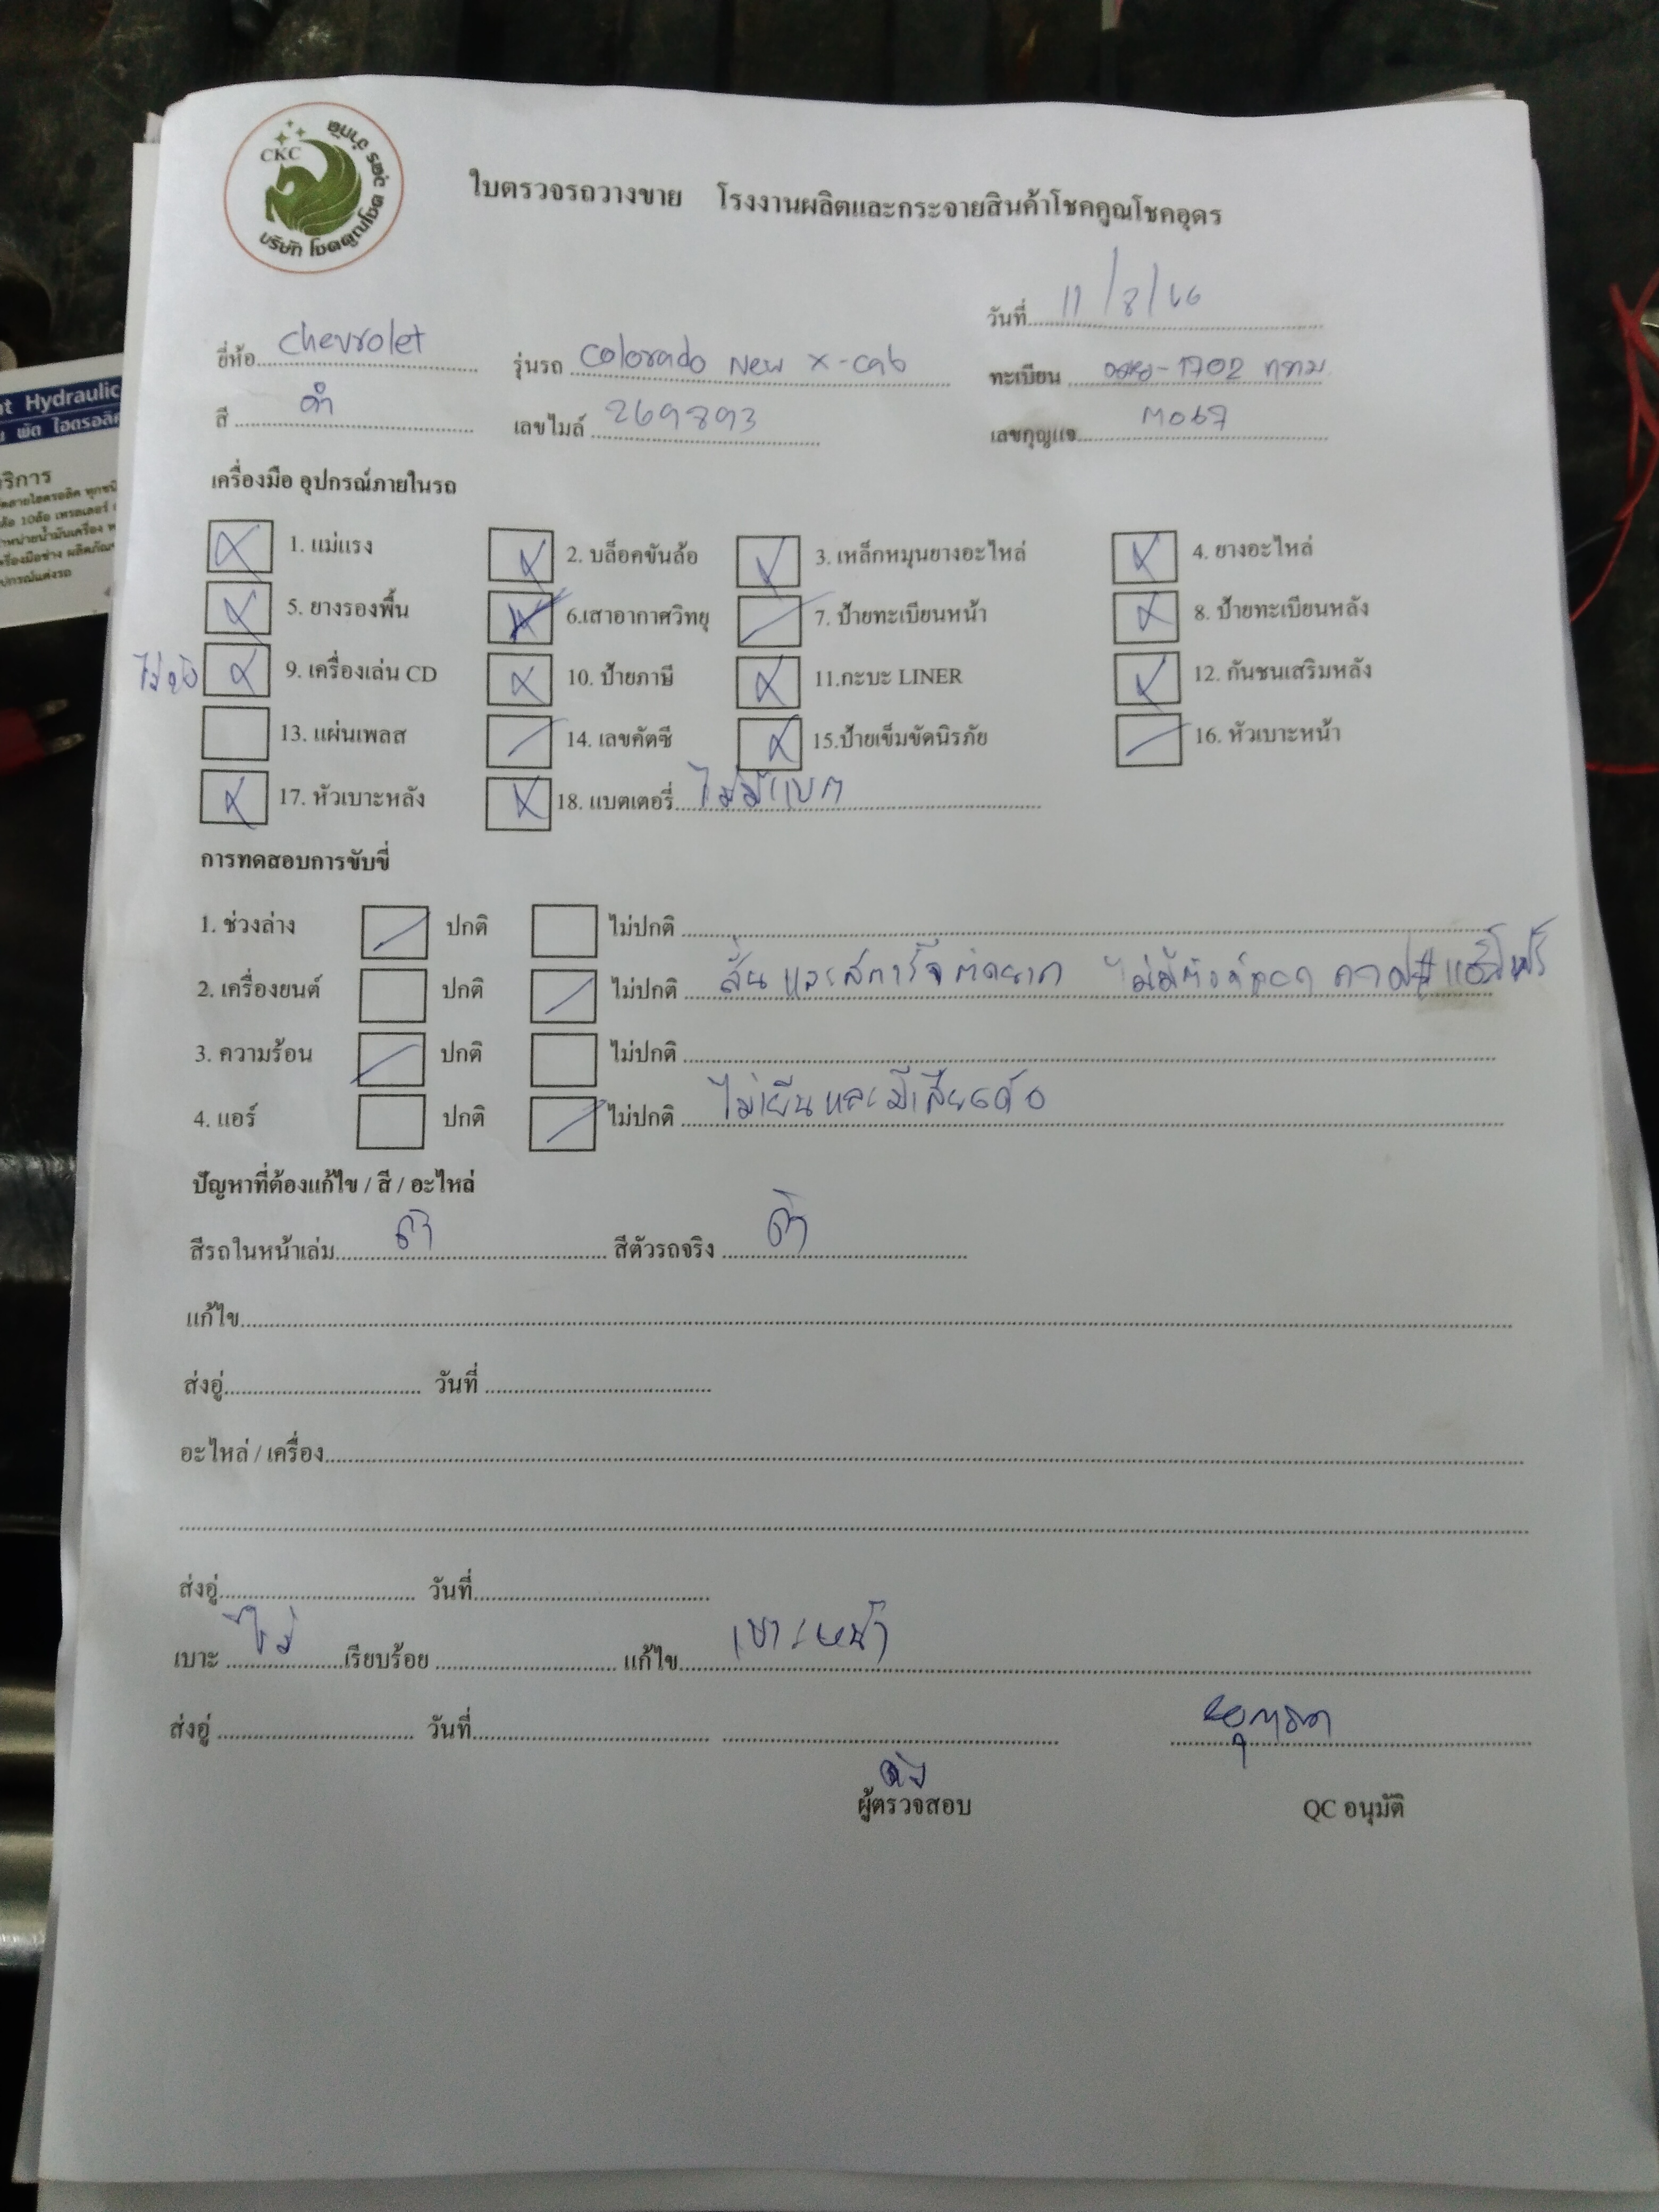 CKC
บริษัท โชคคูณโชค อุดร จำกัด
ใบตรวจรถวางขาย โรงงานผลิตและกระจายสินค้าโชคคูณโชคอุดร
วันที่ 11/8/66
ยี่ห้อ Chevrolet รุ่นรถ Colorado New X-cab ทะเบียน -1702 กทม
สี ดำ เลขไมล์ 269893 เลขกุญแจ M067
เครื่องมือ อุปกรณ์ภายในรถ
1. แม่แรง 2. บล็อคขันล้อ 3. เหล็กหมุนยางอะไหล่ 4. ยางอะไหล่
5. ยางรองพื้น 6.เสาอากาศวิทยุ 7. ป้ายทะเบียนหน้า 8. ป้ายทะเบียนหลัง
9. เครื่องเล่น CD 10. ป้ายภาษี 11.กะบะ LINER 12. กันชนเสริมหลัง
13. แผ่นเพลส 14. เลขคัตซี 15.ป้ายเข็มขัดนิรภัย 16. หัวเบาะหน้า
17. หัวเบาะหลัง 18. แบตเตอรี่ ไม่มีแบต
การทดสอบการขับขี่
1. ช่วงล่าง ปกติ ไม่ปกติ
2. เครื่องยนต์ ปกติ ไม่ปกติ สั่นและสตาร์จติดยาก ไม่มี
3. ความร้อน ปกติ ไม่ปกติ
4. แอร์ ปกติ ไม่ปกติ ไม่เย็นและมีเสียงดัง
ปัญหาที่ต้องแก้ไข / สี / อะไหล่
สีรถในหน้าเล่ม ดำ สีตัวรถจริง ดำ
แก้ไข
ส่งอู่ วันที่
อะไหล่ / เครื่อง
ส่งอู่ วันที่
เบาะ ไม่ เรียบร้อย แก้ไข เบาะหน้า
ส่งอู่ วันที่
ผู้ตรวจสอบ QC อนุมัติ
ot Hydraulic
พัด ไฮดรอลิค